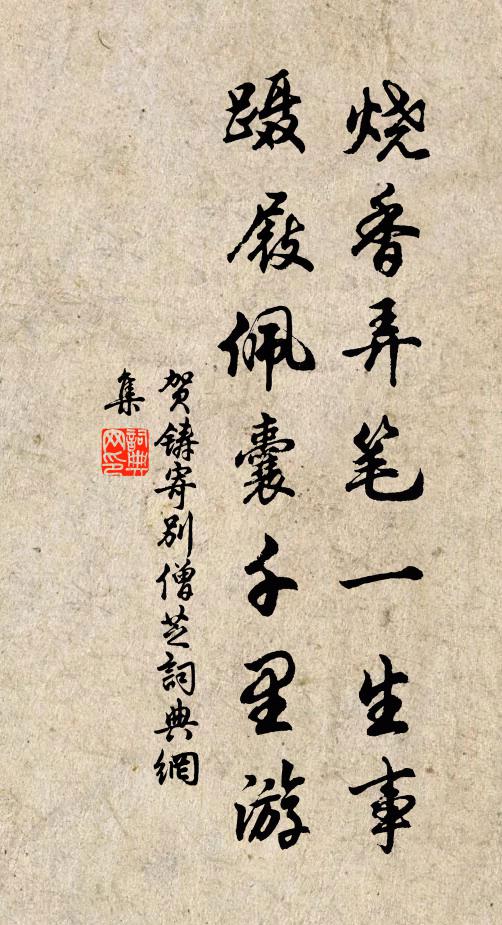 烧香弄笔一生事
蹑屐佩囊千里游
贺铸寄别僧芝詞典網
集
詞典网印